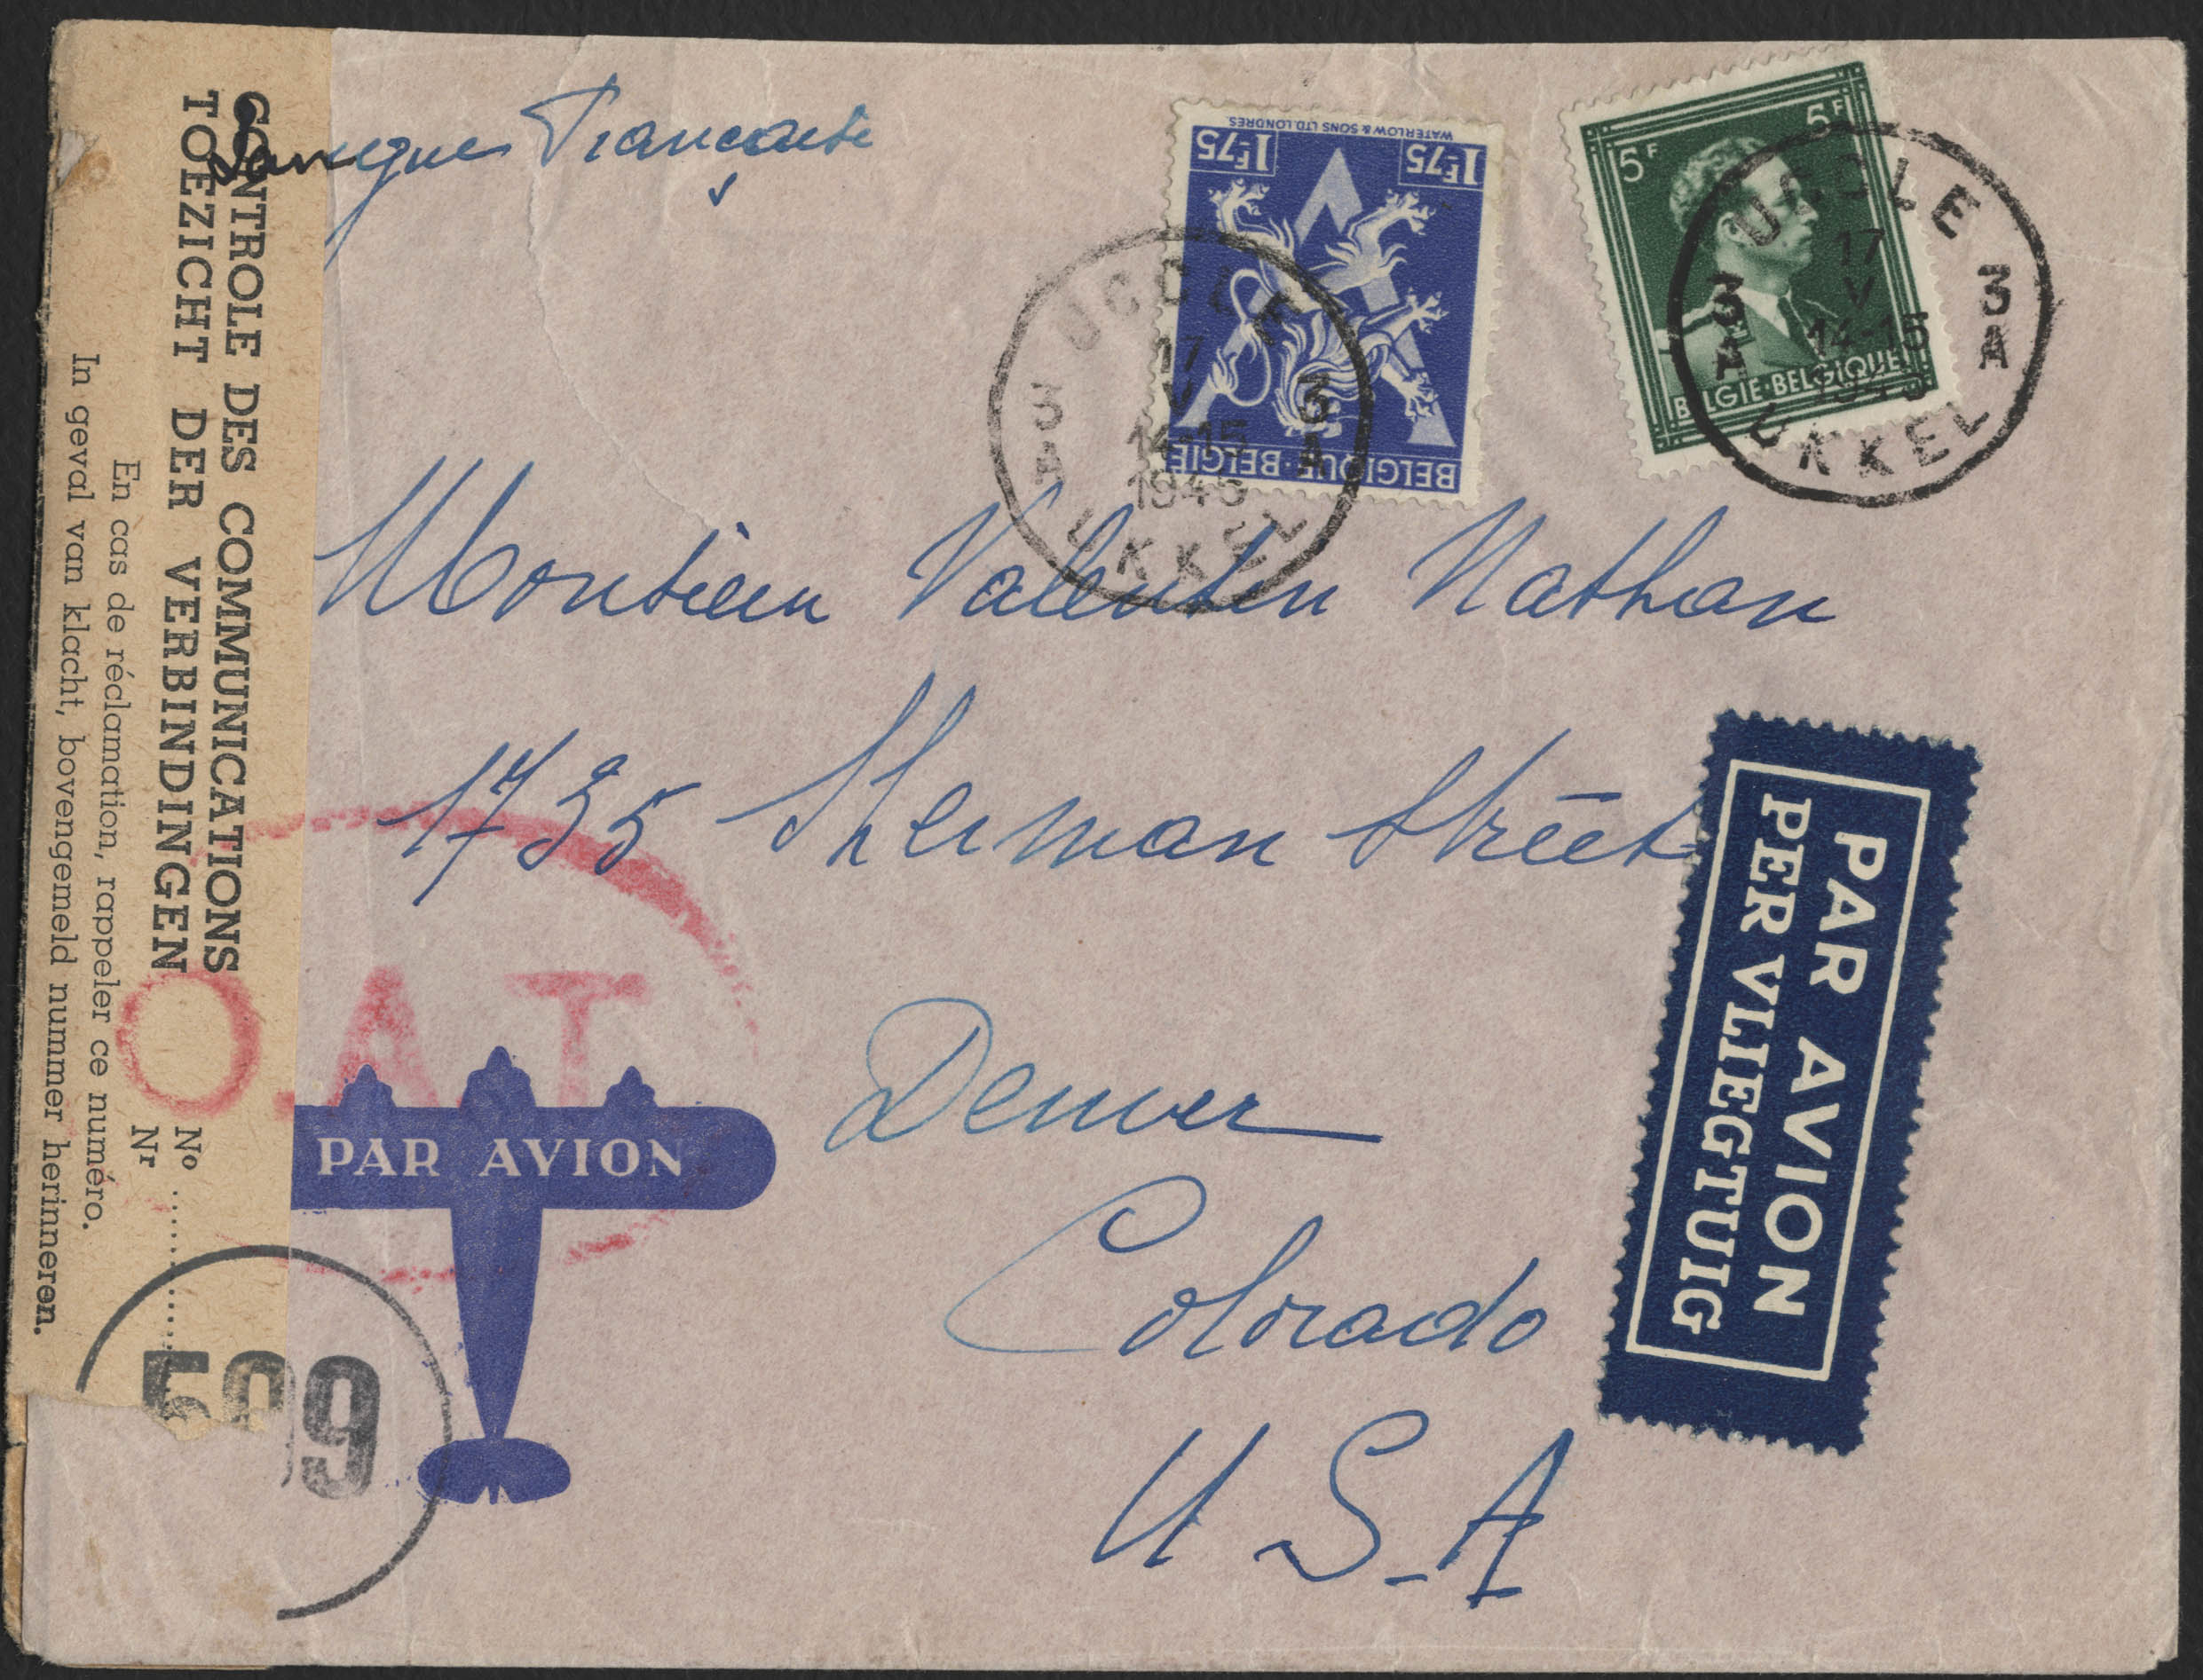 Langue Française
CONTROLE DES COMMUNICATIONS
TOEZICHT DER VERBINDINGEN
No
Nr
En cas de réclamation, rappeler ce numéro.
In geval van klacht, bovengemeld nummer herinneren.
WATERLOW & SONS LTD. LONDRES.
1F75 1F75
BELGIQUE·BELGIE
UCCLE
17
V
14-15
1945
3 A 3 A
UKKEL
5F 5F
BELGIE·BELGIQUE
UCCLE
17
V
14-15
1945
3 A 3 A
UKKEL
Monsieur Valentin Nathan
1735 Sherman Street
Denver
Colorado
U.S.A
O.A.T
PAR AVION
PAR AVION
PER VLIEGTUIG
599